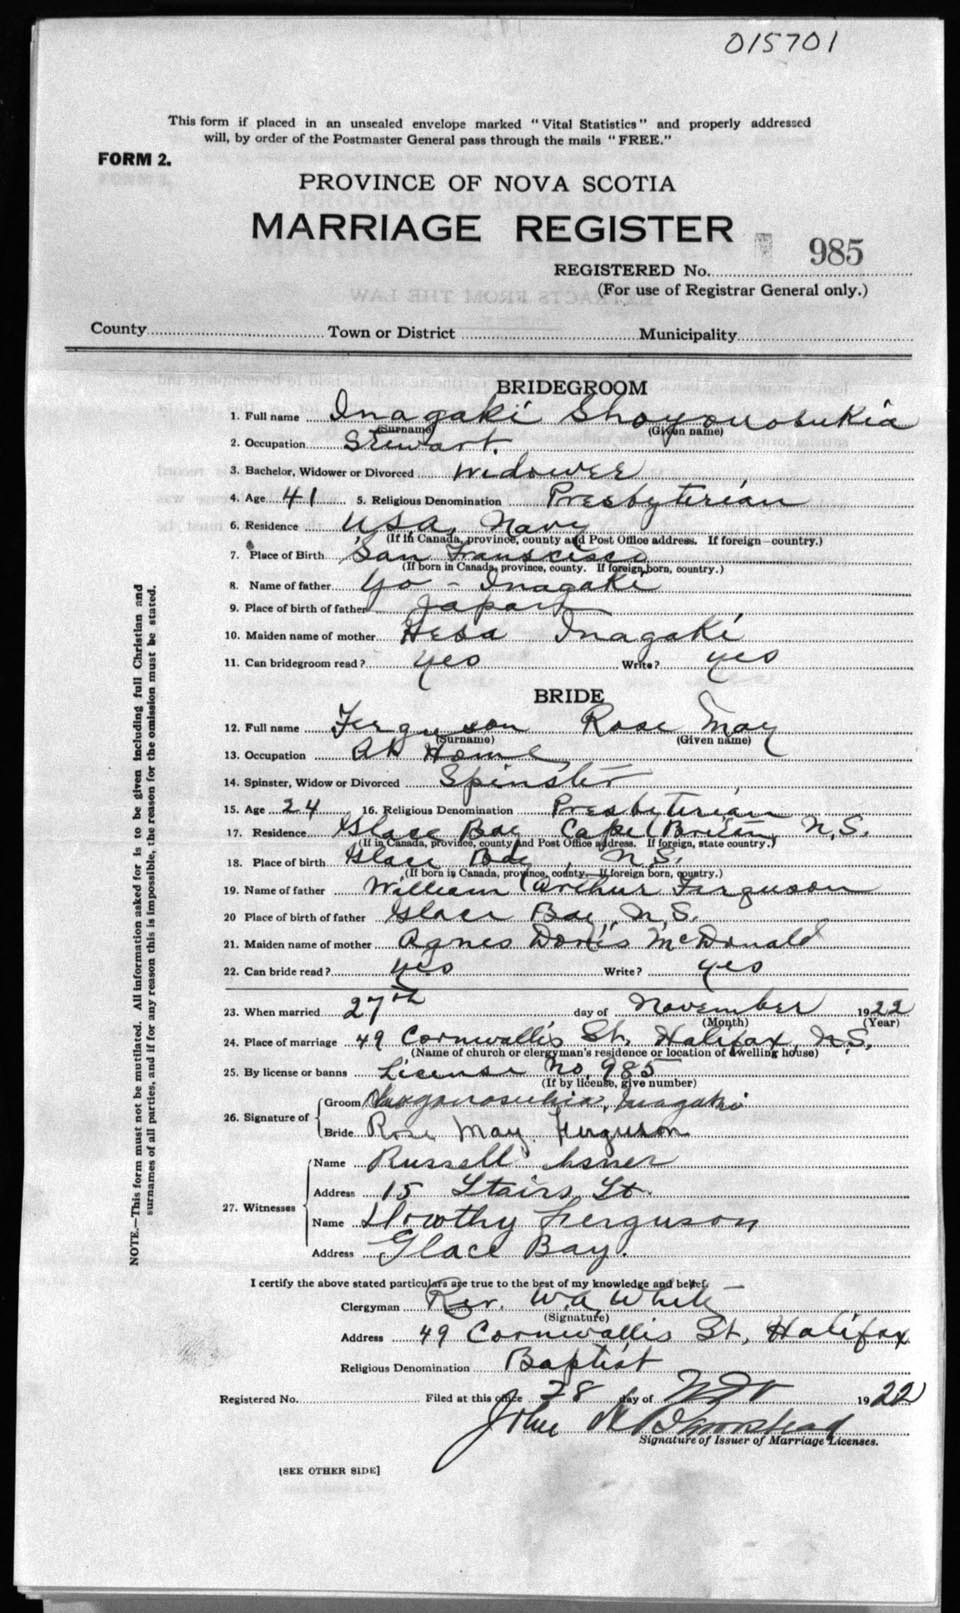 015701
This form if placed in an unsealed envelope marked "Vital Statistics" and properly addressed
will, by order of the Postmaster General pass through the mails "FREE."
FORM 2.
PROVINCE OF NOVA SCOTIA
MARRIAGE REGISTER
REGISTERED No. 985
(For use of Registrar General only.)
County Town or District Municipality
BRIDEGROOM
1. Full name Inagaki Shoyonosukia
(Surname) (Given name)
2. Occupation Stewart.
3. Bachelor, Widower or Divorced Widower
4. Age 41 5. Religious Denomination Presbyterian
6. Residence USA, Navy
(If in Canada, province, county and Post Office address. If foreign—country.)
7. Place of Birth San Franscisco
(If born in Canada, province, county. If foreign born, country.)
8. Name of father Yo - Inagaki
9. Place of birth of father Japan
10. Maiden name of mother Hesa Inagaki
11. Can bridegroom read? yes Write? yes
BRIDE
12. Full name Ferguson Rose May
(Surname) (Given name)
13. Occupation At Home
14. Spinster, Widow or Divorced Spinster
15. Age 24 16. Religious Denomination Presbyterian
17. Residence Glace Bay Cape Breton, N.S.
(If in Canada, province, county and Post Office address. If foreign, state country.)
18. Place of birth Glace Bay, N.S.
(If born in Canada, province, county. If foreign born, country.)
19. Name of father William Arthur Ferguson
20 Place of birth of father Glace Bay, N.S.
21. Maiden name of mother Agnes Doris McDonald
22. Can bride read? yes Write? yes
23. When married 27th day of November 1922
(Month) (Year)
24. Place of marriage 49 Cornwallis St. Halifax, N.S.
(Name of church or clergyman's residence or location of dwelling house)
25. By license or banns License No. 985
(If by license, give number)
26. Signature of
Groom Inagaki
Bride Rose May Ferguson
27. Witnesses
Name Russell
Address 15 Stairs St.
Name Dorothy Ferguson
Address Glace Bay.
I certify the above stated particulars are true to the best of my knowledge and belief.
Clergyman Rev. W.A. White
(Signature)
Address 49 Cornwallis St, Halifax
Religious Denomination Baptist
Registered No. Filed at this office 28 day of Nov 1922
John
Signature of Issuer of Marriage Licenses.
[SEE OTHER SIDE]
NOTE.—This form must not be mutilated. All information asked for is to be given including full Christian and
surnames of all parties, and if for any reason this is impossible, the reason for the omission must be stated.